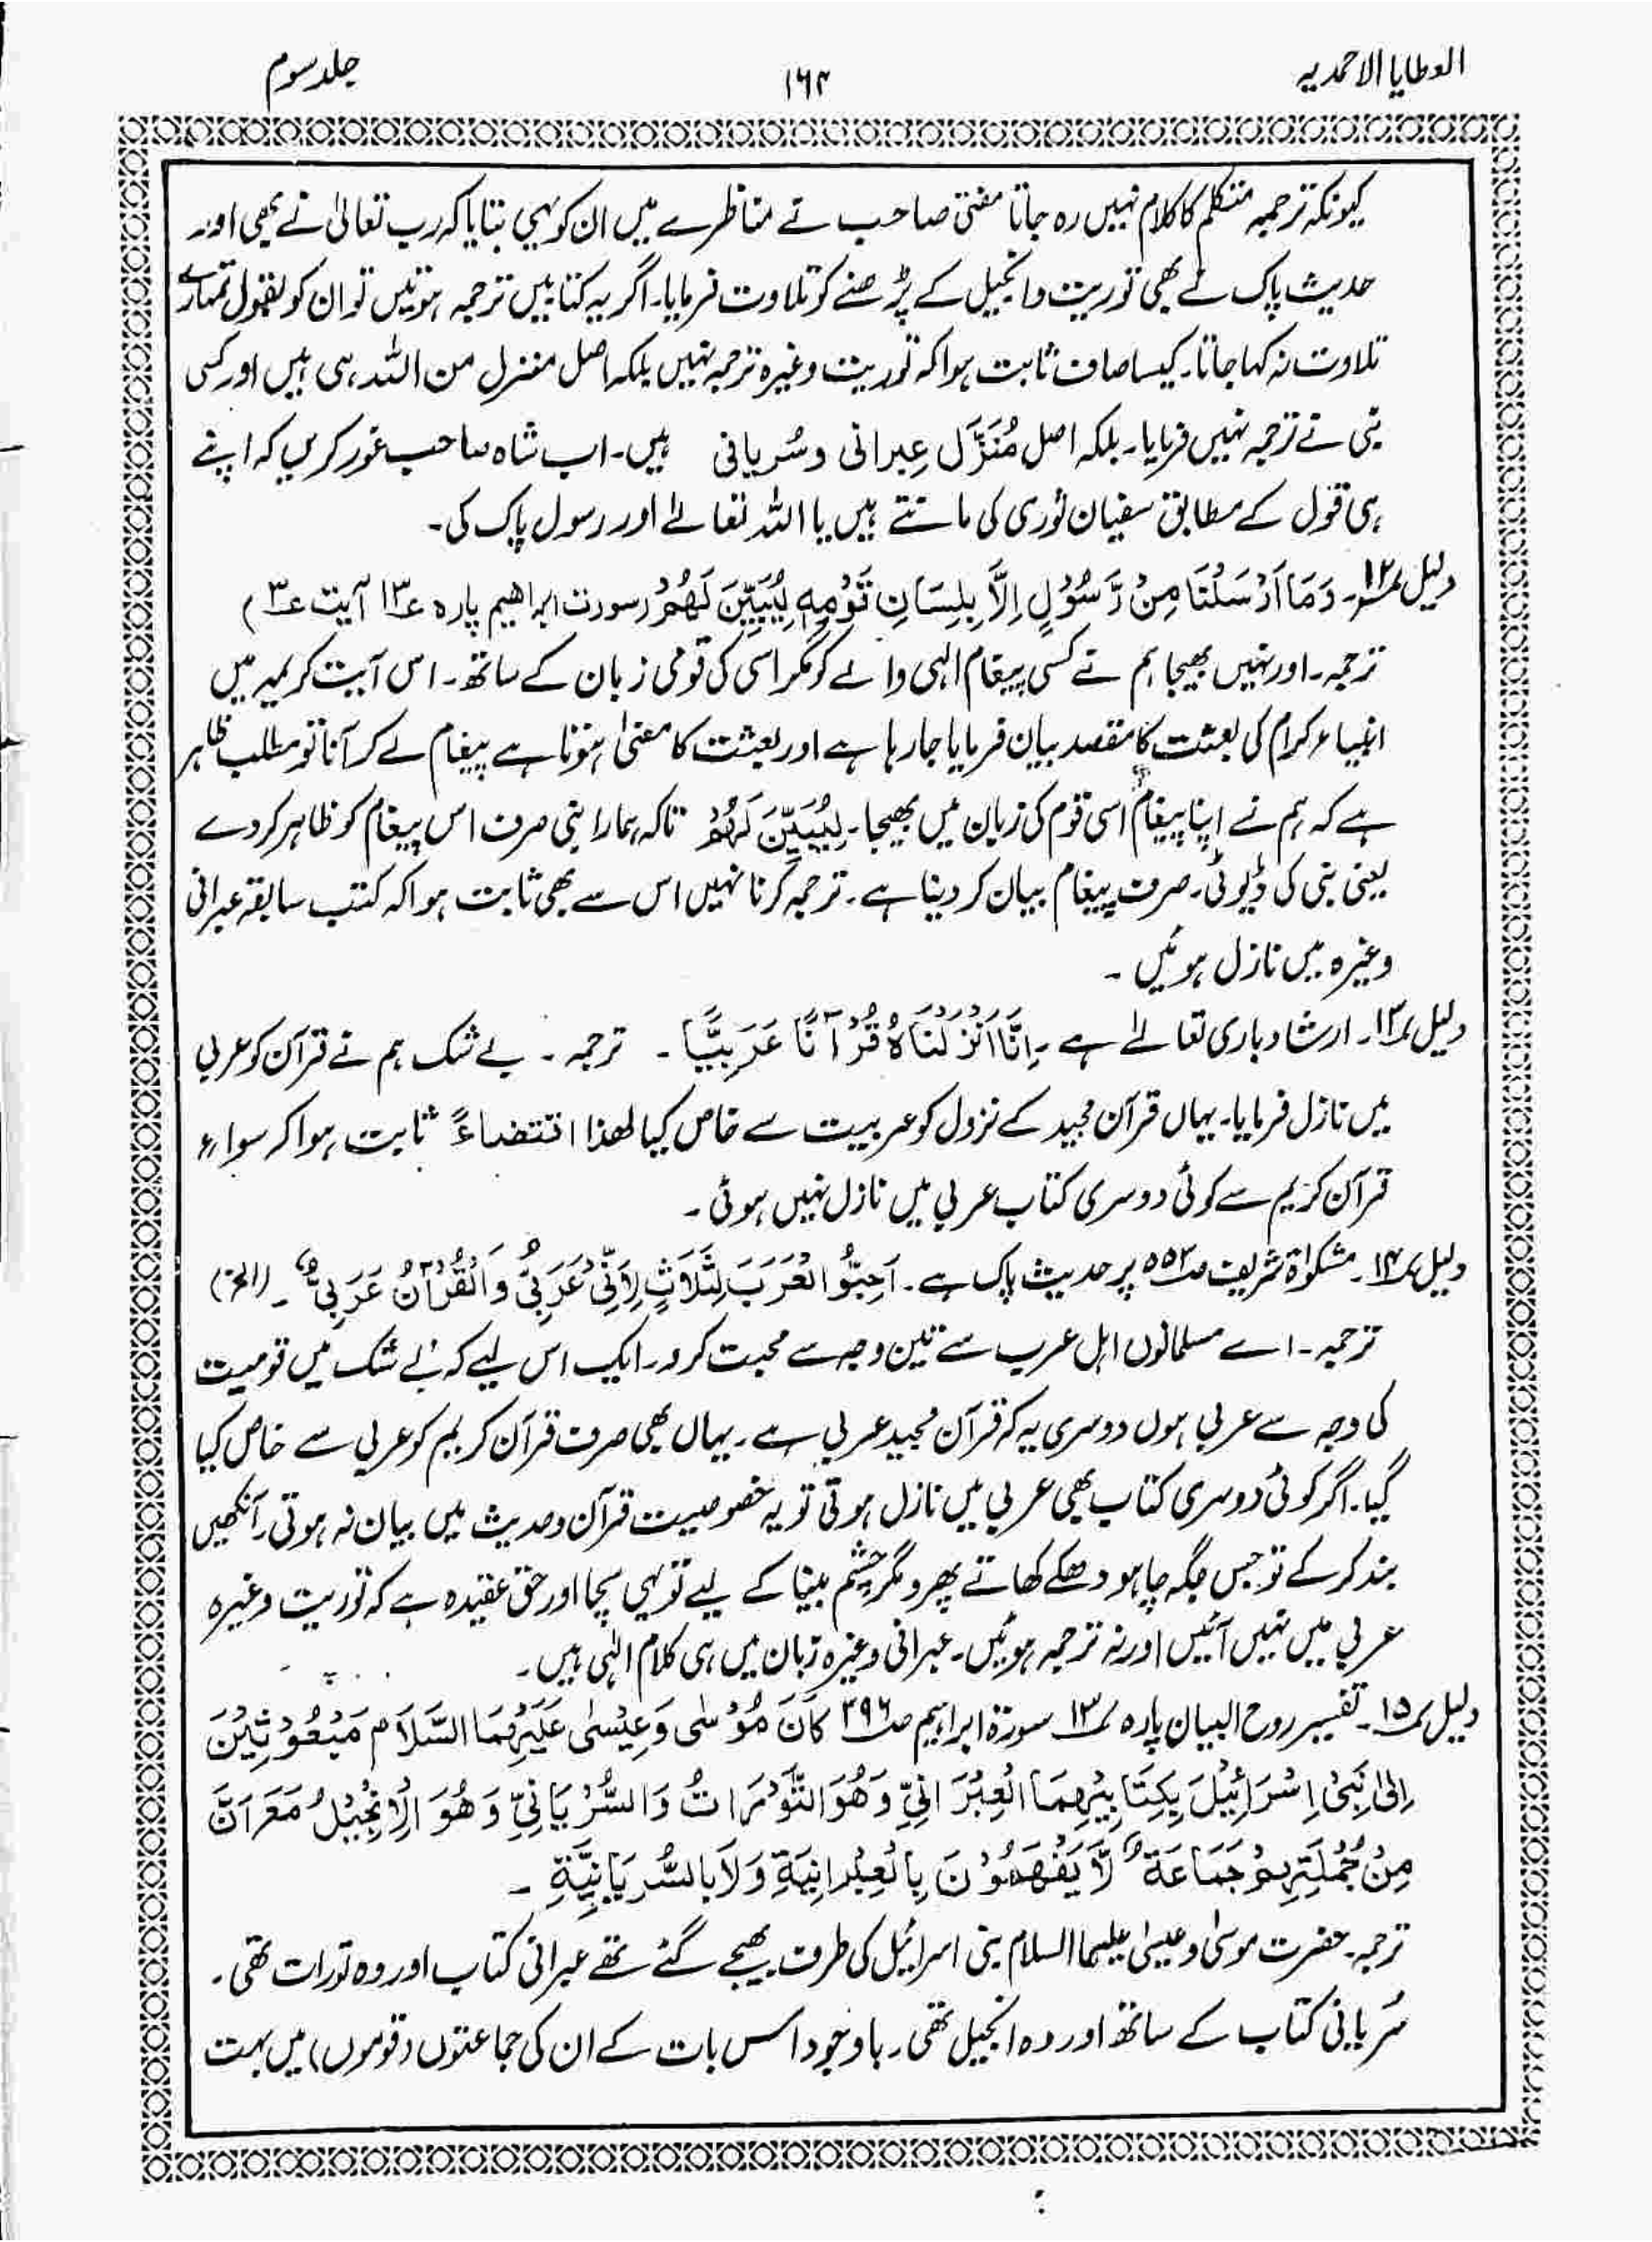 العطایا الاحمدیہ
۱۶۴
جلد سوم
کیونکہ ترجمہ متکلم کا کلام نہیں رہ جاتا مفتی صاحب نے مناظرے میں ان کو یہی بتایا کہ رب تعالیٰ نے بھی اور
حدیث پاک نے بھی توریت و انجیل کے پڑھنے کو تلاوت فرمایا۔ اگر یہ کتابیں ترجمہ ہوتیں تو ان کو بقول تمہارے
تلاوت نہ کہا جاتا۔ کیسا صاف ثابت ہوا کہ توریت وغیرہ ترجمہ نہیں بلکہ اصل منزل من اللہ ہی ہیں اور کسی
نبی نے ترجمہ نہیں فرمایا۔ بلکہ اصل مُنَزَّل عِبرانی وسُریانی ہیں۔ اب شاہ صاحب غور کریں کہ اپنے
ہی قول کے مطابق سفیان ثوری کی مانتے ہیں یا اللہ تعالےٰ اور رسول پاک کی۔
دلیل ۱۲۔ وَمَا اَرْسَلْنَا مِنْ رَّسُوْلٍ اِلَّا بِلِسَانِ قَوْمِهٖ لِيُبَيِّنَ لَهُمْ (سورت ابراھیم پارہ ۱۳ آیت ۴)
ترجمہ۔ اور نہیں بھیجا ہم نے کسی پیغام الٰہی والے کو مگر اسی کی قومی زبان کے ساتھ۔ اس آیت کریمہ میں
انبیاء کرام کی بعثت کا مقصد بیان فرمایا جا رہا ہے اور بعثت کا معنیٰ ہوتا ہے پیغام لے کر آنا تو مطلب ظاہر
ہے کہ ہم نے اپنا پیغام اسی قوم کی زبان میں بھیجا۔ لِيُبَيِّنَ لَهُمْ تاکہ ہمارا نبی صرف اس پیغام کو ظاہر کر دے
یعنی نبی کی ڈیوٹی۔ صرف پیغام بیان کر دینا ہے۔ ترجمہ کرنا نہیں اس سے بھی ثابت ہوا کہ کتب سابقہ عبرانی
وغیرہ میں نازل ہوئیں۔
دلیل ۱۳۔ ارشاد باری تعالےٰ ہے۔ اِنَّا اَنْزَلْنَاهُ قُرْآنًا عَرَبِيًّا۔ ترجمہ۔ بے شک ہم نے قرآن کو عربی
میں نازل فرمایا۔ یہاں قرآن مجید کے نزول کو عربیت سے خاص کیا لھذا اقتضاءً ثابت ہوا کہ سواء
قرآن کریم سے کوئی دوسری کتاب عربی میں نازل نہیں ہوئی۔
دلیل ۱۴۔ مشکوٰۃ شریف صـ۵۵۲ پر حدیث پاک ہے۔ اَحِبُّو الْعَرَبَ لِثَلَاثٍ لِاَنِّيْ عَرَبِيٌّ وَالْقُرْآنُ عَرَبِيٌّ۔ (الخ)
ترجمہ۔ اے مسلمانوں اہل عرب سے تین وجہ سے محبت کرو۔ ایک اس لیے کہ بے شک میں قومیت
کی وجہ سے عربی ہوں دوسری یہ کہ قرآن مجید عربی ہے۔ یہاں بھی صرف قرآن کریم کو عربی سے خاص کیا
گیا۔ اگر کوئی دوسری کتاب بھی عربی میں نازل ہوتی تو یہ خصوصیت قرآن و حدیث میں بیان نہ ہوتی۔ آنکھیں
بند کر کے تو جس جگہ چاہو دھکے کھاتے پھرو مگر چشم بینا کے لیے تو یہی سچا اور حق عقیدہ ہے کہ توریت وغیرہ
عربی میں نہیں آئیں اور نہ ترجمہ ہوئیں۔ عبرانی وغیرہ زبان میں ہی کلام الٰہی ہیں۔
دلیل ۱۵۔ تفسیر روح البیان پارہ ۱۳ سورۃ ابراہیم صـ۳۹۶ كَانَ مُوْسٰى وَعِيْسٰى عَلَيْهِمَا السَّلَام مَبْعُوْثِيْنَ
اِلٰى بَنِىْ اِسْرَائِيْلَ بِكِتَابَيْهِمَا الْعِبْرَانِيِّ وَهُوَ التَّوْرَاتُ وَالسُّرْيَانِيِّ وَهُوَ الْاِنْجِيْلُ مَعَ اَنَّ
مِنْ جُمْلَتِهِمْ جَمَاعَةٌ لَّا يَفْهَمُوْنَ بِالْعِبْرَانِيَةِ وَلَا بِالسُّرْيَانِيَّةِ۔
ترجمہ۔ حضرت موسیٰ و عیسیٰ علیہما السلام بنی اسرائیل کی طرف بھیجے گئے تھے عبرانی کتاب اور وہ تورات تھی۔
سُریانی کتاب کے ساتھ اور وہ انجیل تھی۔ باوجود اس بات کے ان کی جماعتوں (قوموں) میں بہت